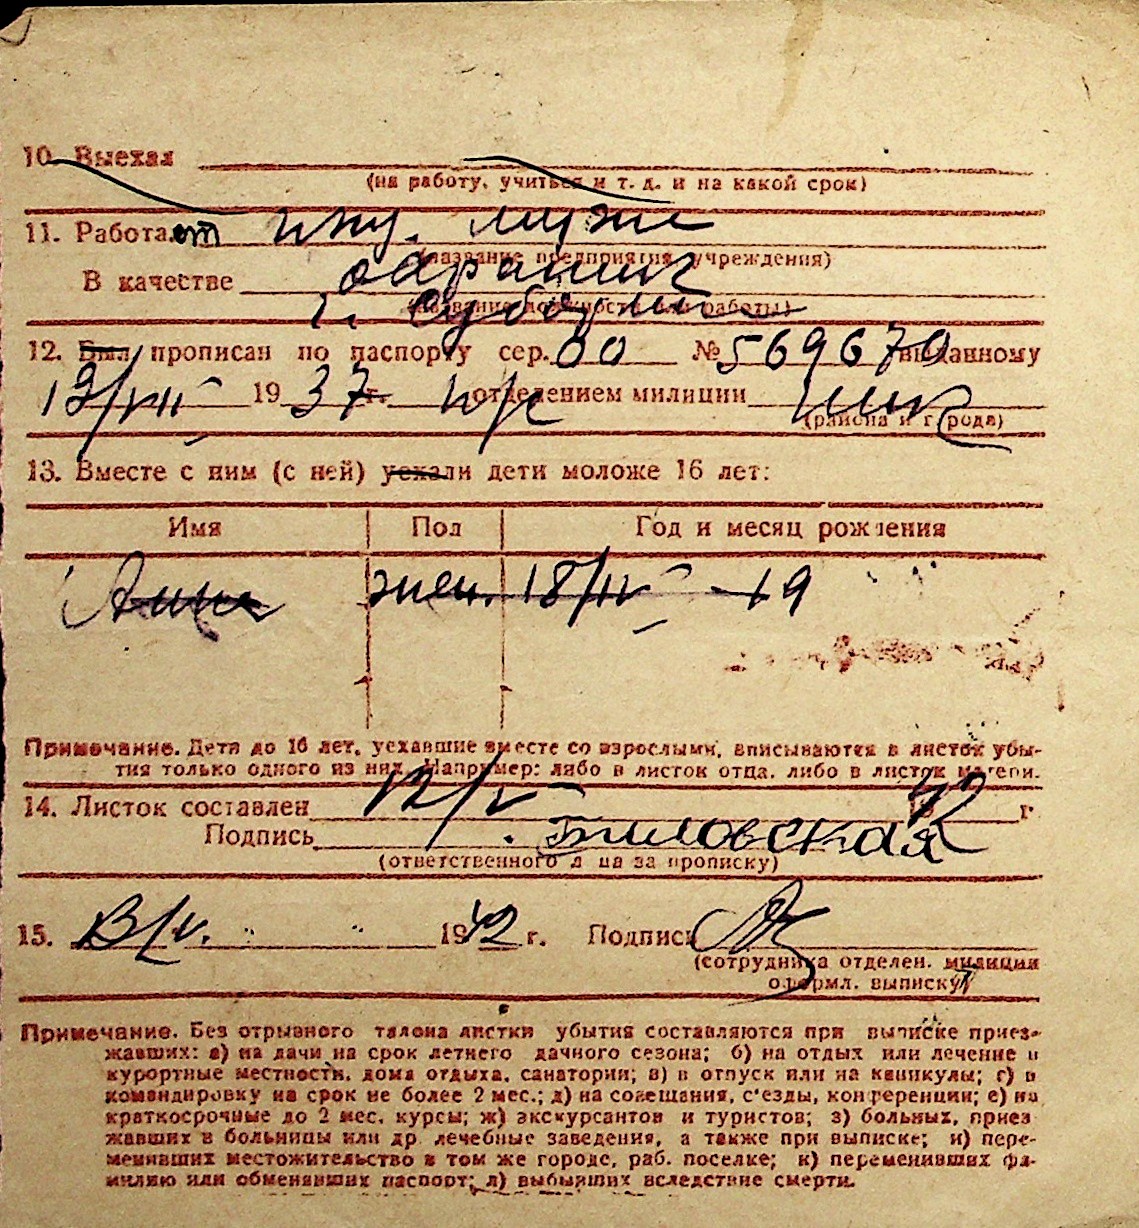 10. Выехал
(на работу, учиться и т. д. и на какой срок)
11. Работает иж. мужа
(название предприятия, учреждения)
В качестве
(название должности или работы)
12. Был прописан по паспорту сер. 00 № 569670 выданному
13/VII 1937 г. отделением милиции
(района и города)
13. Вместе с ним (с ней) уехали дети моложе 16 лет:
Имя Пол Год и месяц рождения
жен. 18/IV -19
Примечание. Дети до 16 лет, уехавшие вместе со взрослыми, вписываются в листок убы-
тия только одного из них. Например: либо в листок отца, либо в листок матери.
14. Листок составлен 12/V 1942 г.
Подпись Биловская
(ответственного лица за прописку)
15. 13/V. 1942 г. Подпись
(сотрудника отделен. милиции
оформл. выписку)
Примечание. Без отрывного талона листки убытия составляются при выписке приез-
жавших: а) на дачи на срок летнего дачного сезона; б) на отдых или лечение в
курортные местности, дома отдыха, санатории; в) в отпуск или на каникулы; г) в
командировку на срок не более 2 мес.; д) на совещания, с'езды, конференции; е) на
краткосрочные до 2 мес. курсы; ж) экскурсантов и туристов; з) больных, приез-
жавших в больницы или др лечебные заведения, а также при выписке; и) пере-
менивших местожительство в том же городе, раб. поселке; к) переменивших фа-
милию или обменявших паспорт; л) выбывших вследствие смерти.